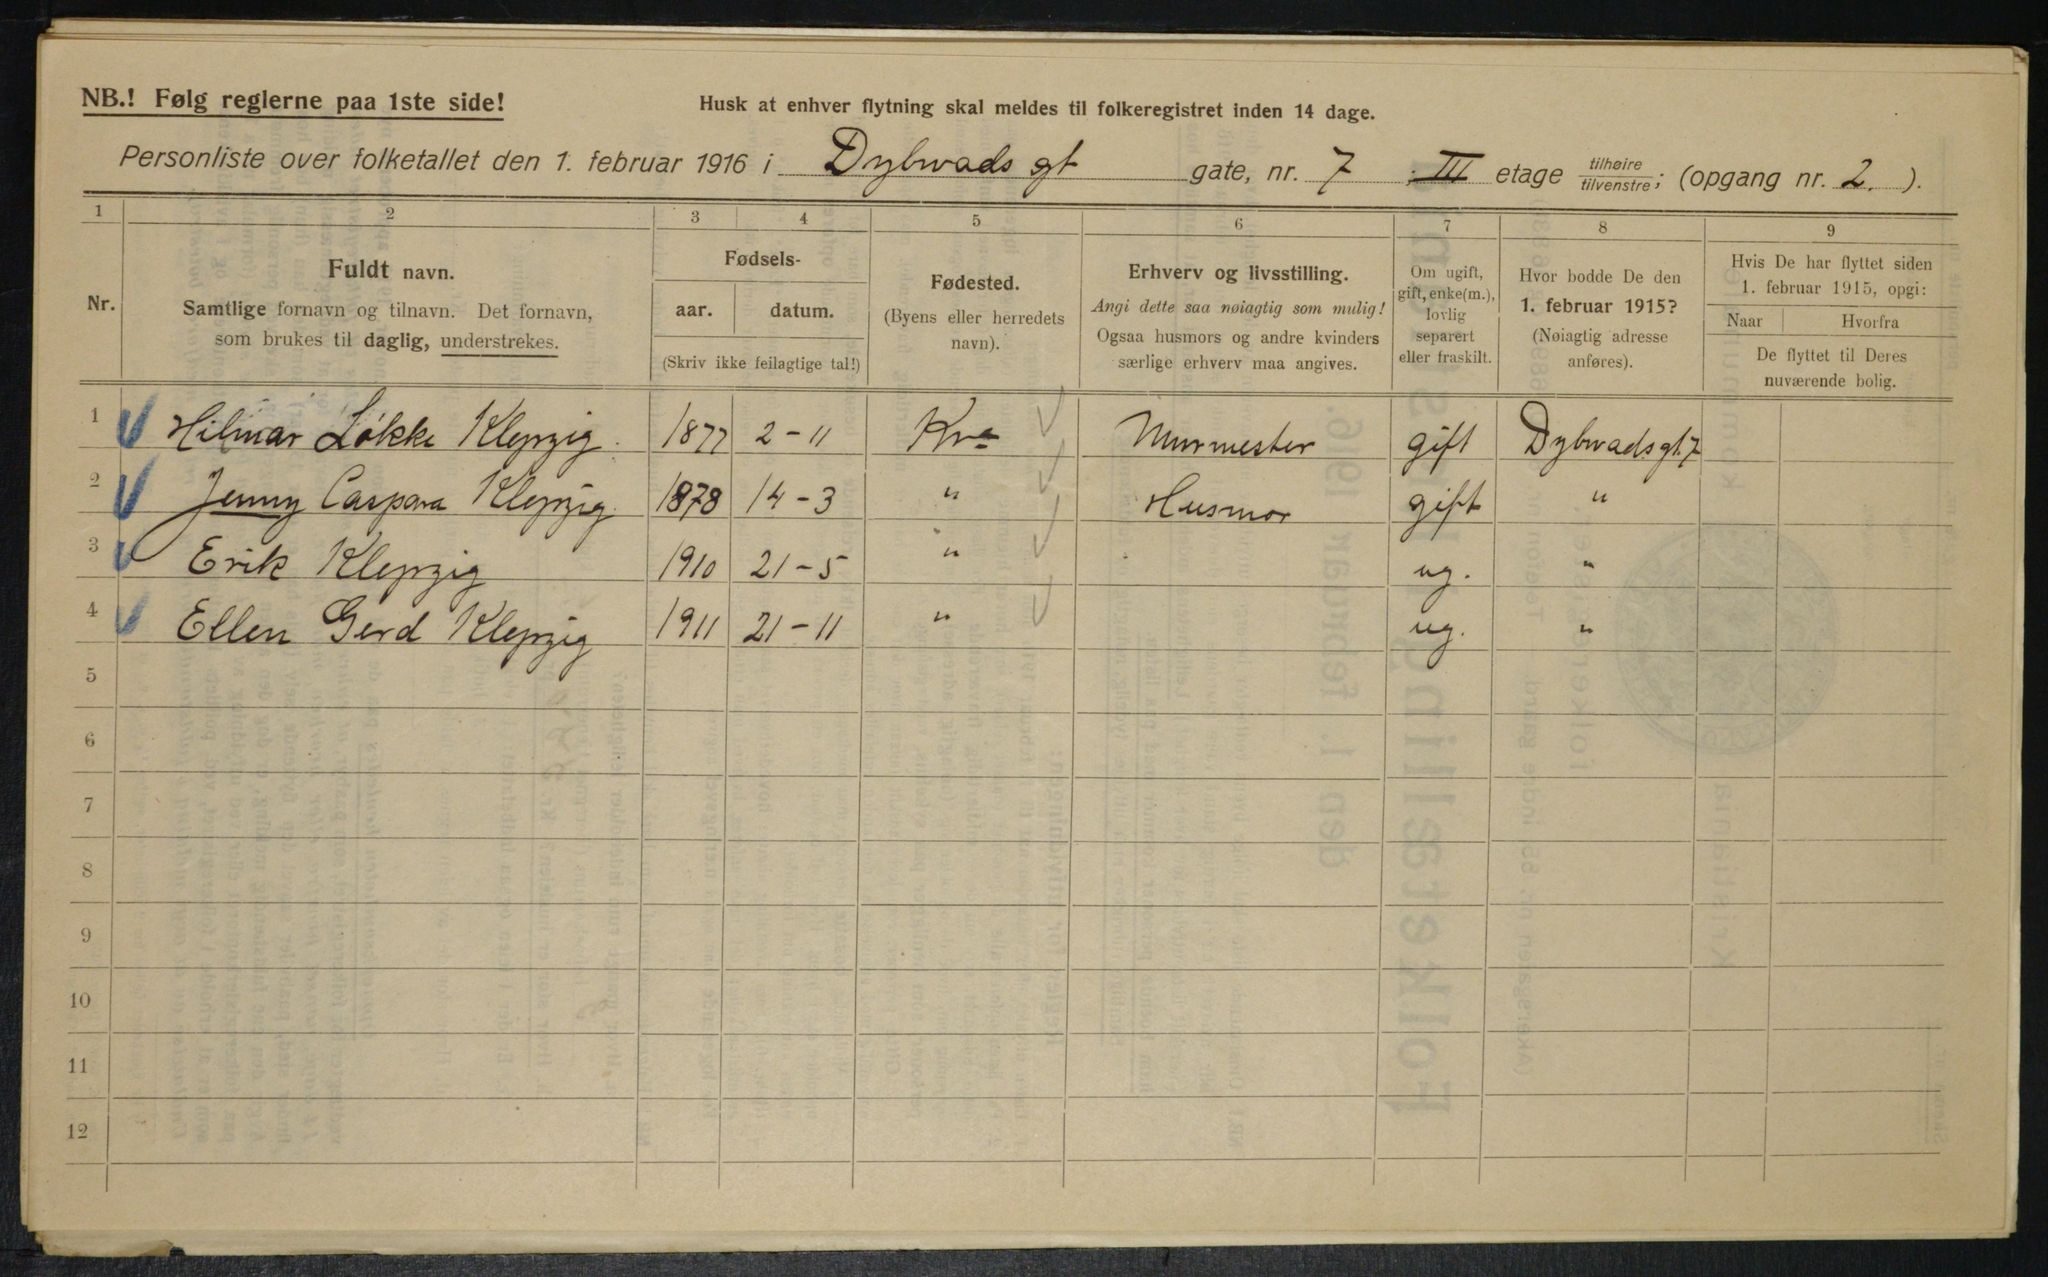 NB.! Følg reglerne paa 1ste side!
Husk at enhver flytning skal meldes til folkeregistret inden 14 dage.
Personliste over folketallet den 1. februar 1916 i Dybwads gt gate, nr. 7 ; III etage tilhøire/tilvenstre; (opgang nr. 2. ).
1 2 3 4 5 6 7 8 9
Nr.
Fuldt navn.
Samtlige fornavn og tilnavn. Det fornavn,
som brukes til daglig, understrekes.
Fødsels-
aar. datum.
(Skriv ikke feilagtige tal!)
Fødested.
(Byens eller herredets
navn).
Erhverv og livsstilling.
Angi dette saa nøiagtig som mulig!
Ogsaa husmors og andre kvinders
særlige erhverv maa angives.
Om ugift,
gift, enke(m.),
lovlig
separert
eller fraskilt.
Hvor bodde De den
1. februar 1915?
(Nøiagtig adresse
anføres).
Hvis De har flyttet siden
1. februar 1915, opgi:
Naar Hvorfra
De flyttet til Deres
nuværende bolig.
1 Hilmar Løkke Klepzig. 1877 2-11 Kra Murmester gift Dybwadsgt. 7
2 Jenny Caspara Klepzig. 1878 14-3 " Husmor gift "
3 Erik Klepzig 1910 21-5 " ug. "
4 Ellen Gerd Klepzig 1911 21-11 " ug. "
5
6
7
8
9
10
11
12